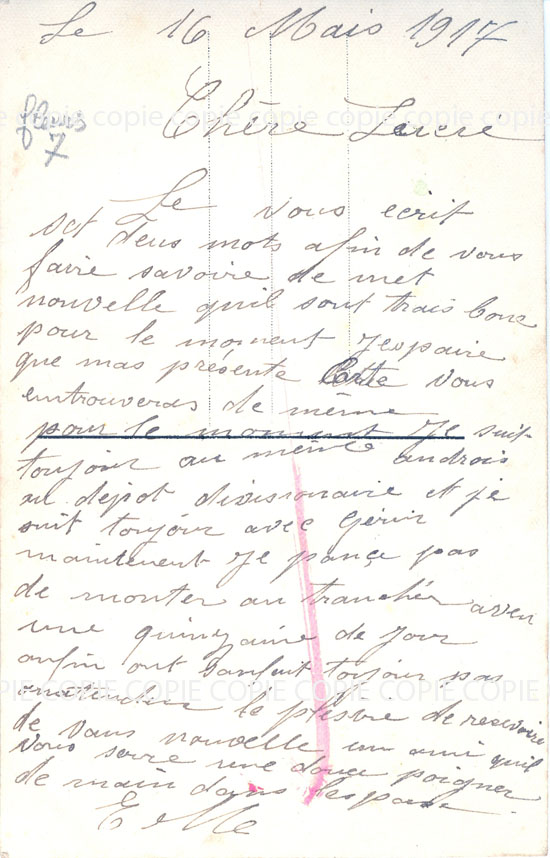 Le 16 Mais 1917
fleurs
7
Chère Lucie
Le vous ecrit
set deus mots afin de vous
faire savoire de met
nouvelle quil sont trais bone
pour le moment Jespaire
que mas présente Carte vous
entrouveras de même
pour le moment Je suit
toujour au même androis
au depot divisionaire et je
suit toujour avec
maintenent Je pance pas
de monter au tranchér aven
une quinzaine de jour
anfin ont sanfait toujour pas
le plésire de resevoire
de vous nouvelle un ami quil
vous serre une douce poigner
de main dans
COPIE COPIE COPIE COPIE COPIE
COPIE COPIE COPIE COPIE COPIE